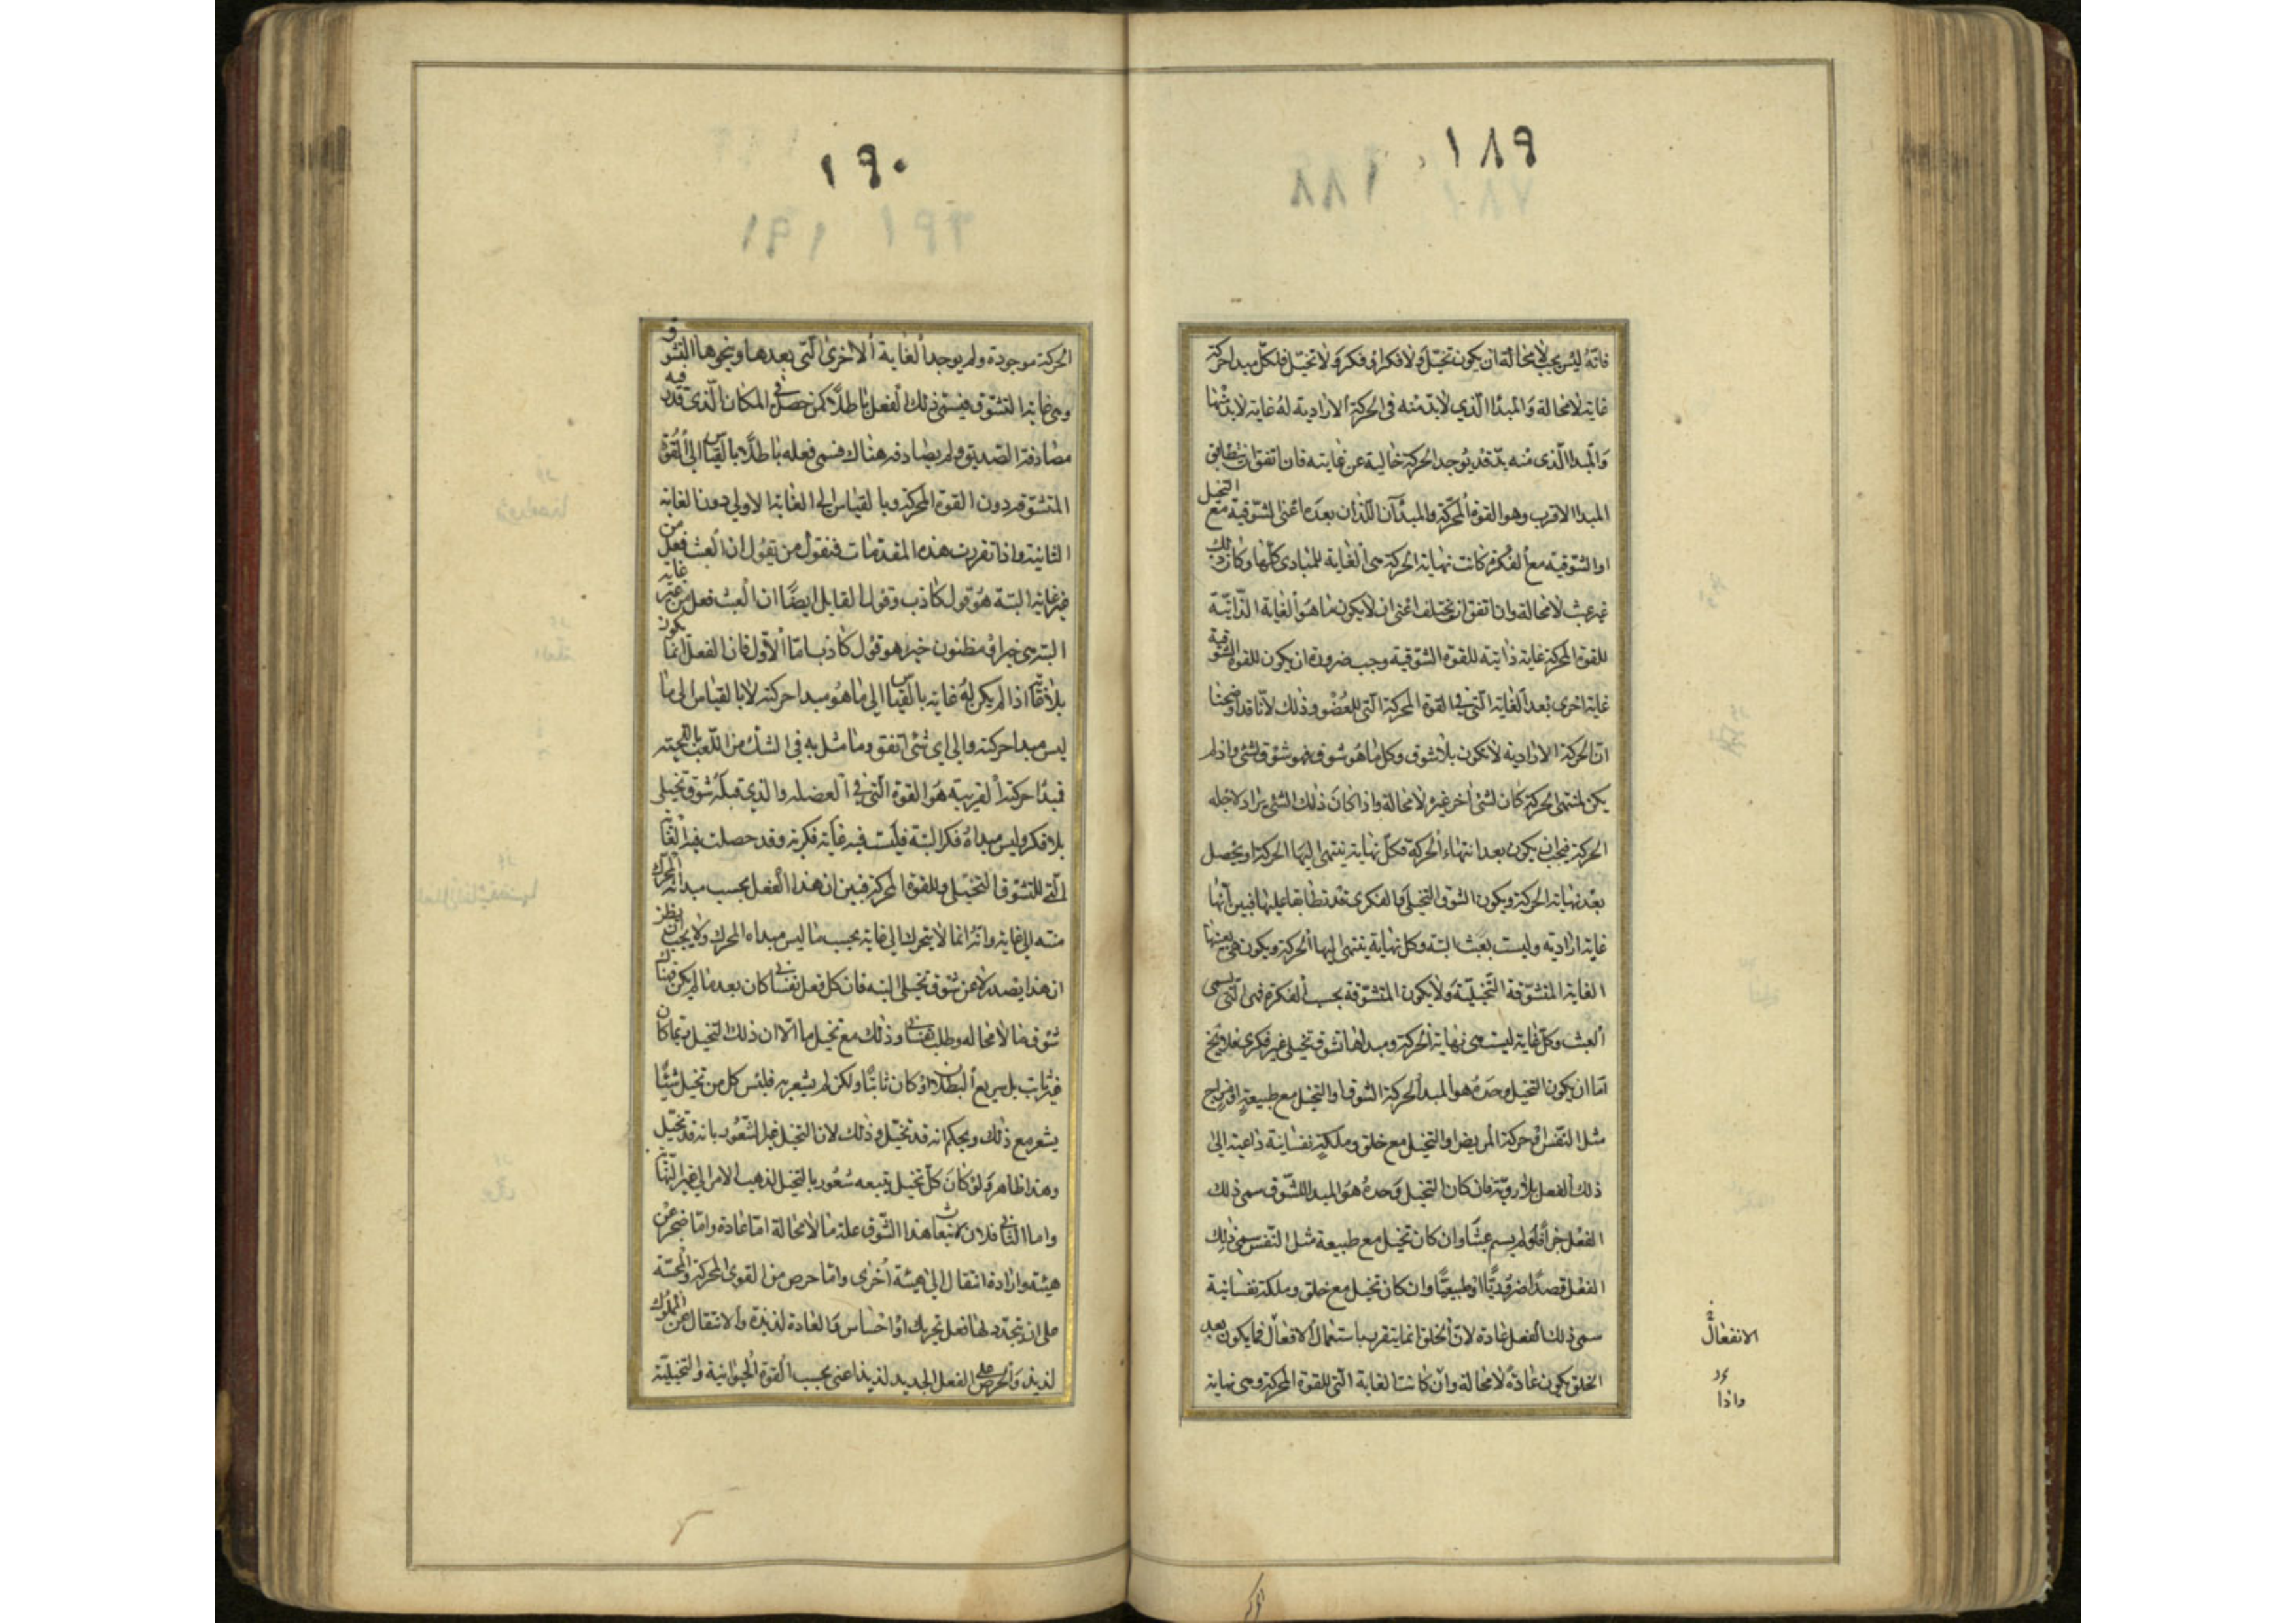 ١٨٩
فانّه ليس يجب لا محالة ان يكون تخيّل ولا فكر او فكر ولا تخيّل فلكلّ مبدا حركة
غاية لا محالة والمبدا الّذي لا بدّ منه في الحركة الاراديه له غاية لا بدّ منها
والمبدا الّذى منه بدّ قد يوجد الحركة خالية عن غايته فان اتفق ان يتطابق
المبدا الاقرب وهو القوة المحرّكة والمبدآن اللّذان بعده اعنى الشوقية مع التخيل
او الشوقية مع الفكرة كانت نهاية الحركة هى الغاية للمبادى كلّها وكان ذلك
غير عبث لا محالة وان اتفق ان يختلف اعنى ان لا يكون ما هو الغاية الذّاتيّة
للقوة المحركة غاية ذاتية للقوة الشوقية وجب ضرورة ان يكون للقوة الشوقية
غاية اخرى بعد الغاية التى في القوة المحركة التى للعضو وذلك لانّا قد اوضحنا
انّ الحركة الارادية لا تكون بلا شوق وكل ما هو شوق فهو شوق لشئ واذا لم
يكن لمنتهى الحركة كان لشئ آخر غيره لا محالة واذا كان ذلك الشئ يراد لاجله
الحركة فيجب ان يكون بعد انتهاء الحركة فكلّ نهاية ينتهى اليها الحركة او يحصل
بعد نهاية الحركة ويكون الشوق التخيلى والفكرى قد تطابقا عليها فبين انّها
غاية ارادية وليست بعبث البتة وكل نهاية ينتهى اليها الحركة ويكون هى بعينها
الغاية المتشوّقة التخيليّة ولا يكون المتشوّقة بحسب الفكرة فهى الّتى تسمى
العبث وكلّ غاية ليست هى نهاية الحركة ومبداها تشوق تخيلى غير فكرى فلا يخ
امّا ان يكون التخيل وحده هو المبدا لحركة الشوق او التخيل مع طبيعة او مزاج
مثل التنفس او حركة المريض او التخيل مع خلق وملكة نفسانية داعية الى
ذلك الفعل بلا روية فان كان التخيل وحده هو المبدا للشّوق سمى ذلك
الفعل جزافا ولم يسم عبثا وان كان تخيل مع طبيعة مثل التنفس سمى ذلك
الفعل قصدا ضروريّا او طبيعيّا وان كان تخيل مع خلق وملكة نفسانية
سمى ذلك الفعل عادة لانّ الخلق انما يتقرر باستعمال الافعال فما يكون بعد
الخلق يكون عادة لا محالة وان كانت الغاية التى للقوة المحركة وهى نهاية
الانفعال
واذا
١٩٠
الحركة موجودة ولم يوجد الغاية الاخرى الّتى بعدها وينحوها التشوق
وهى غاية التشوّق فيسمى ذلك الفعل باطلا كمن حصل في المكان الّذى قدر فيه
مصادفة الصّديق ولم يصادفه هناك فسمى فعله باطلا بالقياس الى القوة
المتشوّقة دون القوة المحركة وبالقياس الى الغاية الاولى دون الغاية
الثانية واذا تقررت هذه المقدّمات فنقول من يقول ان العبث فعل من
غير غاية البتة هو قول كاذب وقول القايل ايضا ان العبث فعل من غير غاية
البتة هى خير او مظنون خير هو قول كاذب امّا الاوّل فان الفعل انّما يكون
بلا غاية اذا لم يكن له غاية بالقياس الى ما هو مبدا حركته لا بالقياس الى ما
ليس مبدا حركته والى اى شئ اتفق وما مثل به في الشك من اللّعب باللحية
فمبدا حركته القريبة هو القوة الّتى في العضلة والذي قبله شوق تخيلى
بلا فكر وليس مبداه فكر البتة فليست فيه غاية فكرية وقد حصلت فيه الغاية
الّتى للتشوق التخيلى وللقوة المحركة فبين ان هذا الفعل بحسب مبدأ المحرّك
منته الى غاية وانّه انما لا يتحرك الى غاية بحسب ما ليس مبداه المحرك ولا يجب ان يظن
ان هذا يصدر لا عن شوق تخيلى البتة فان كل فعل نفسانى كان بعد ما لم يكن فهناك
شوق ما لا محاله وطلب نفسانى وذلك مع تخيل ما الّا ان ذلك التخيل ربما كان
غير ثابت بل سريع البطلان او كان ثابتا ولكن لم يشعر به فليس كل من تخيل شيئا
يشعر مع ذلك ويحكم انه قد تخيّل وذلك لان التخيل غير الشعور بانه قد تخيّل
وهذا ظاهر ولو كان كلّ تخيل يتبعه شعور بالتخيل لذهب الامر الى غير النّهاية
واما الثانى فلان لانبعاث هذا الشّوق علة ما لا محالة امّا عادة وامّا ضجر عن
هيئة وارادة انتقال الى هيئة اخرى وامّا حرص من القوى المحركة والمحسّة
على ان يتجدد لها فعل تحريك او احساس والعادة لذيذة والانتقال عن المملوك
لذيذ والحرص على الفعل الجديد لذيذ اعنى بحسب القوة الحيوانية والتخيليّة